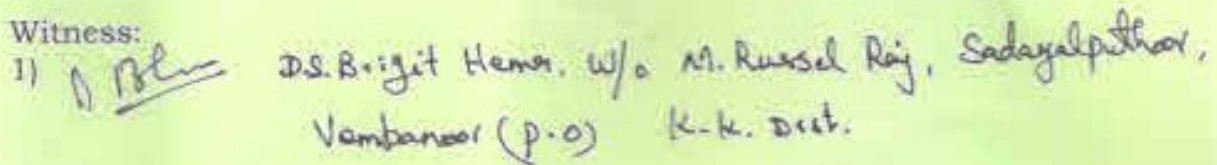 Witness:
1) D.S. Brigit Hema. W/o M. Russel Raj, Sadayalputhoor,
Vembanoor (P.O) K.K. Dist.